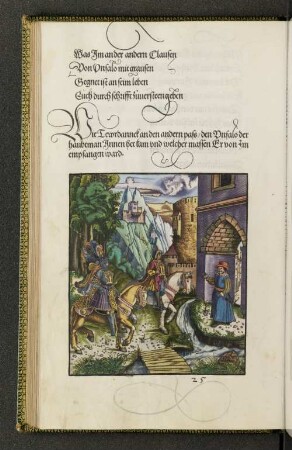 Was Im an der andern Clausen
Von Vnfalo mit grausen
Gegnet ist an seim leben
Euch durch schrifft zuuersteen geben
Wie Tewrdannck an den andern pass, den Vnfalo der
haubtman Innen het kam vnd welcher massen Er von Im
empfangen ward
25